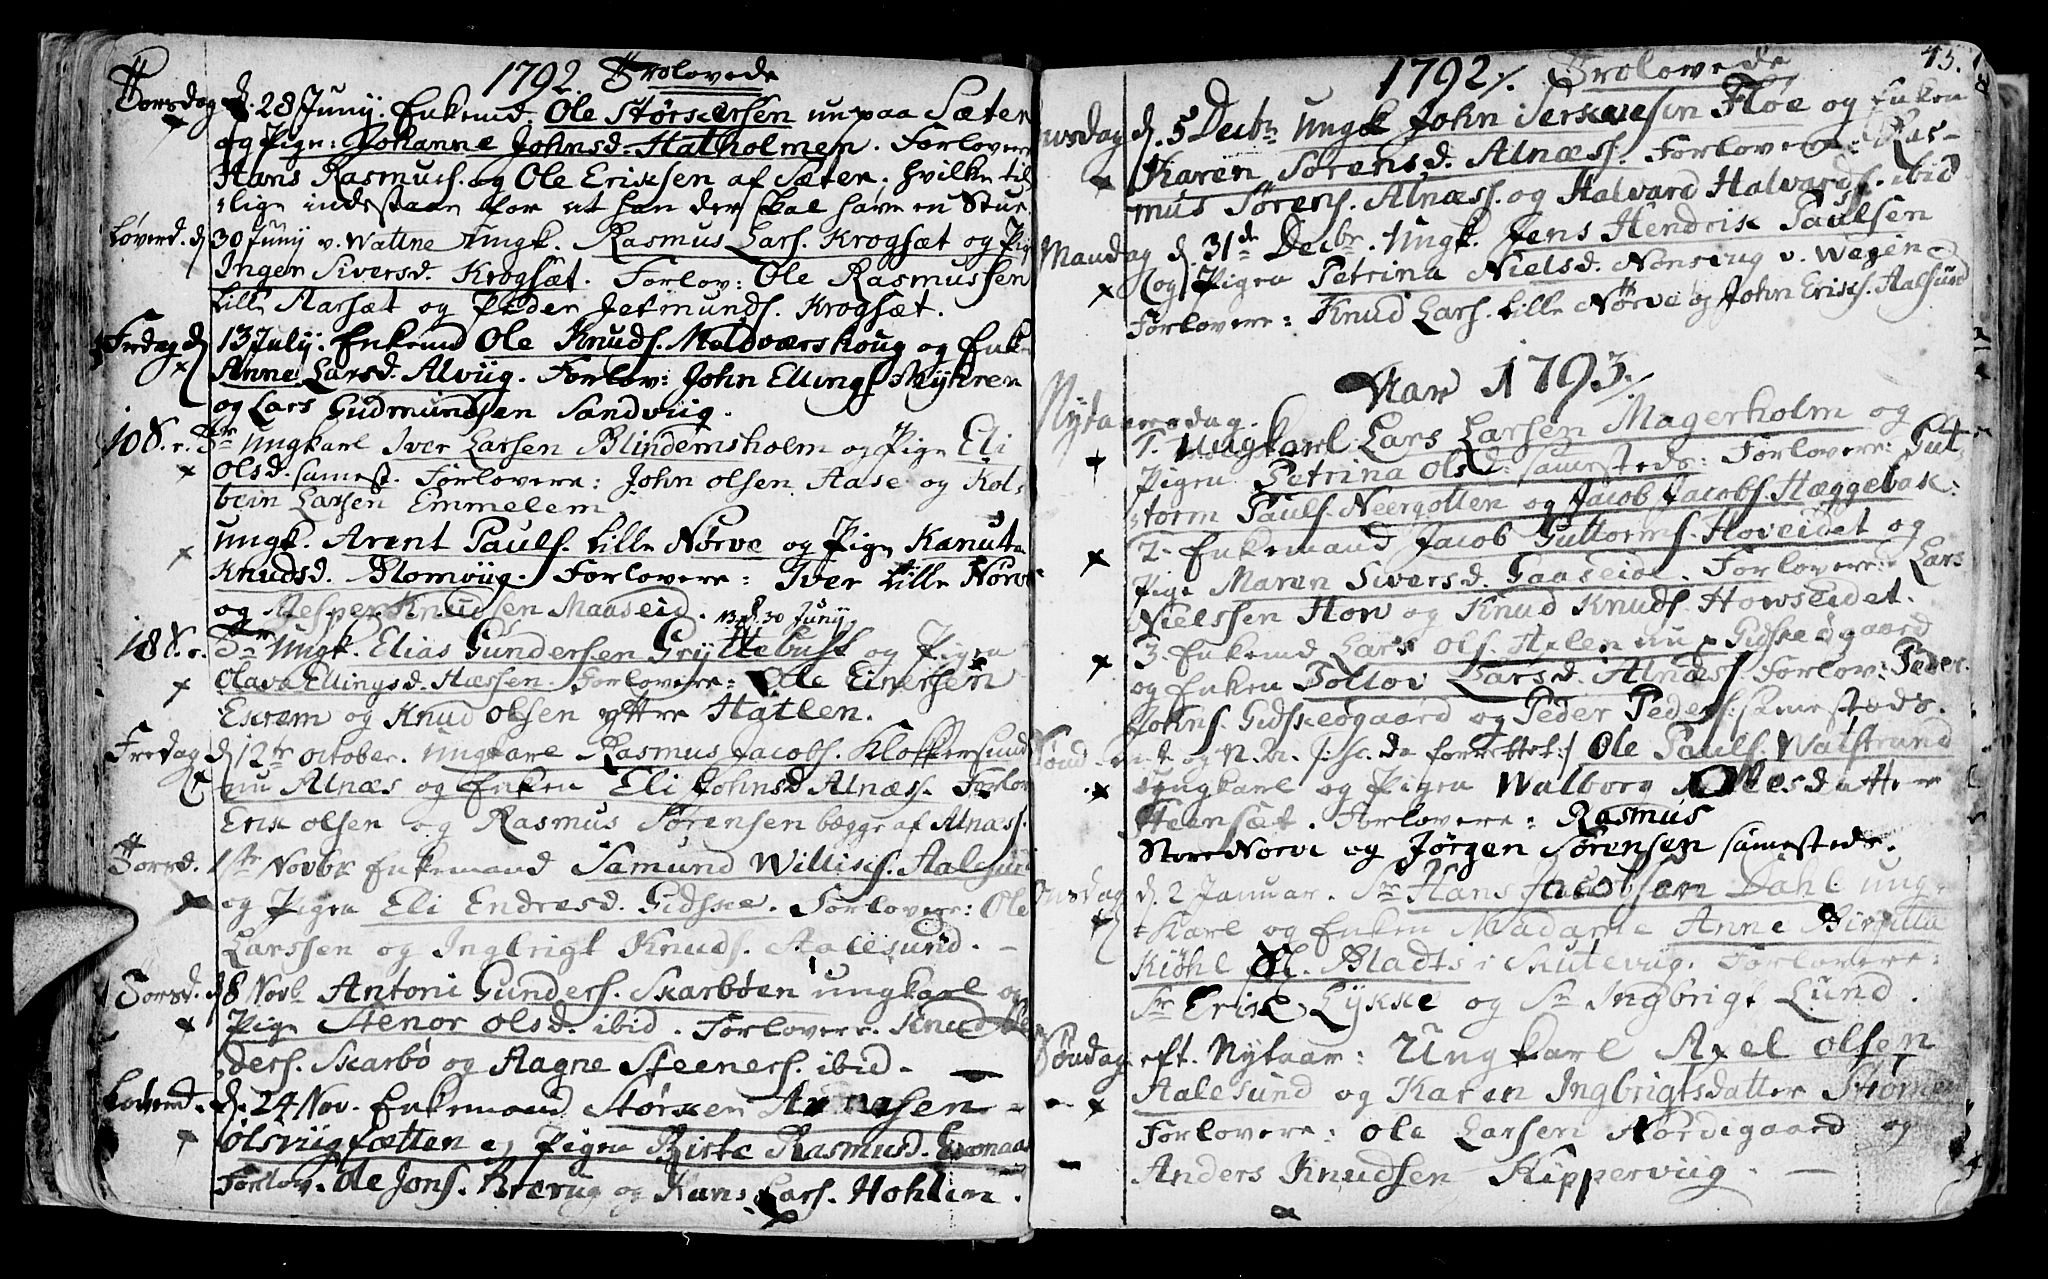 1792 Trolovede
Torsdag d. 28 Junij. Enkemd. Ole Størkersen nu paa Sæter
og Pige: Johanne Johnsd. Hatholmen. Forlovere
Hans Rasmuss. og Ole Ericksen af Sæter. hvilke til
lige indestaae for at han der skal have en Stue
Løverd. d 30 Junij v. Watne Ungk. Rasmus Lars. Krogsæt og Pig
Inger Siversd. Krogsæt. Forlov: Ole Rasmussen
Lille Aarsæt og Peder Jetmunds. Krogsæt.
Fredag d 13 July: Enkemd Ole Knuds. Meldværshoug og Enk
Anne Larsd. Alvüg. Forlov: John Ellings Myhren
og Lars Gudmundsen Sandvüg.
10 S. e. Tr Ungkarl Iver Larsen Blindemsholm og Pige Eli
olsd. samest. Forlovere: John olsen Aase og Kol-
bein Larsen Emmelem
Ungk. Arent Pauls. Lille Nørve og Pige Kanuta
Knudsd. Blomvüg. Forlovere: Iver Lille Nørve
og Jesper Knudsen Maaseid. 30 Junij
18 S. e. Tr Ungk. Elias Gundersen Gryttebust og Pigen
Olava Ellingsd. Hessen. Forlovere: Ole Einersen
Exrem og Knud olsen yttre Hatlen.
Fredag d 12te october. Ungkarl Rasmus Jacobs. Klokkersund
nu Alnæs og Enken Eli Johnsd Alnæss. Forlov
Erik olsen og Rasmus Sørensen begge af Alnæss.
Torsd. 1te Novbr Enkemand Samund Willichs. Aalesund
og Pigen Eli Endresd. Gidske. Forlovere: Ole
Larssen og Ingbrigt Knuds. Aalesund. —
Torsd. d 8 Novb Antoni Gunders. Skarbøen ungkarl og
Pige Stenor olsd. ibid. Forlovere. Knud
ders. Skarbø og Aagne Steeners. ibid. —
Løverd. d. 24 Nov. Enkemand Størker
olsvügsætten og Pigen Birte Rasmusd.
Forlov. Ole Jons. Brævug og Hans Lars. Hohlen.
1792 Trolovede 45.
Onsdag d. 5 Decbr Ungk John Serksesen Fløe og Enken
Karen Sørensd. Alnæss. Forlovere: Ras-
mus Sørens. Alnæss. og Halvard Halvards. ibid
Mandag d. 31de Decbr. Ungk. Jens Hendrik Paulsen
og Pigen Petrina Nielsd. Nonsvug v. Wegen
Forlovere: Knud Lars. Lille Nørve og John Ericks. Aalsund
Aar 1793.
Nytaarsdag.
1. Ungkarl Lars Larsen Magerholm og
Pigen Petrina olsd. samesteds: Forlovere: Gut-
torm Pauls Neergotten og Jacob Jacobs. Hæggebak.
2. Enkemand Jacob Guttorms. Hoveidet og
Pige Maren Siversd. Gaaseide. Forlovere: Lars
Nielssen How og Knud Knuds. Howseidet.
3. Enkemd Lars ols. Helen nu p Gidskeøgaard
og Enken Tollov Larsd. Alnæss. Forlov: Peder
Johns. Gidskeøgaard og Peder Peders. samesteds.
Ole Pauls. Walstrand
Ungkarl og Pigen Walborg Olesdatter
Steensæt. Forlovere: Rasmus
Store Nørve og Jørgen Sørensen samesteds.
Onsdag d. 2 Januar. Sr Hans Jacobsen Dahl ung-
karl og Enken Madame Anne Birgitta
Kiøhl Sl. Bladts i Skutevüg. Forlovere:
Sr Erik Lykke og Sr Ingbrigt Lund.
Søndag eft. Nytaar: Ungkarl Axel olsen
Aalesund og Karen Ingbrigtsdatter
Forlovere: Ole Larsen Nordigaard og
Anders Knudsen Kipperviig. —